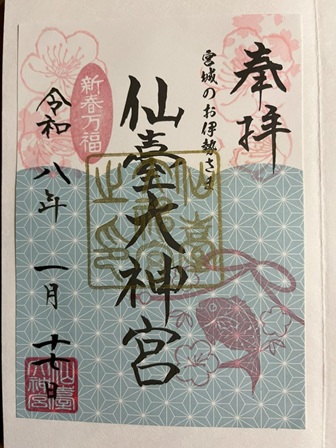 奉拝
宮城のお伊勢さま
仙臺大神宮
新春万福
令和八年 一月 十七日
仙臺
大神宮